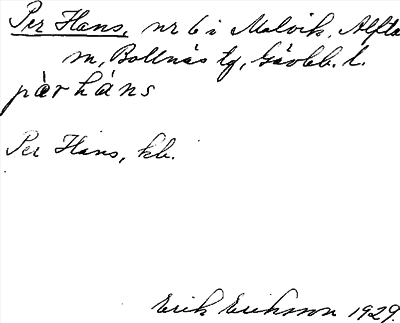 Per Hans, nr 6 i Malvik, Alfta
m, Bollnäs tg, Gävleb. l.
pàr háns
Per Hans, kb.
Erik Eriksson 1929.